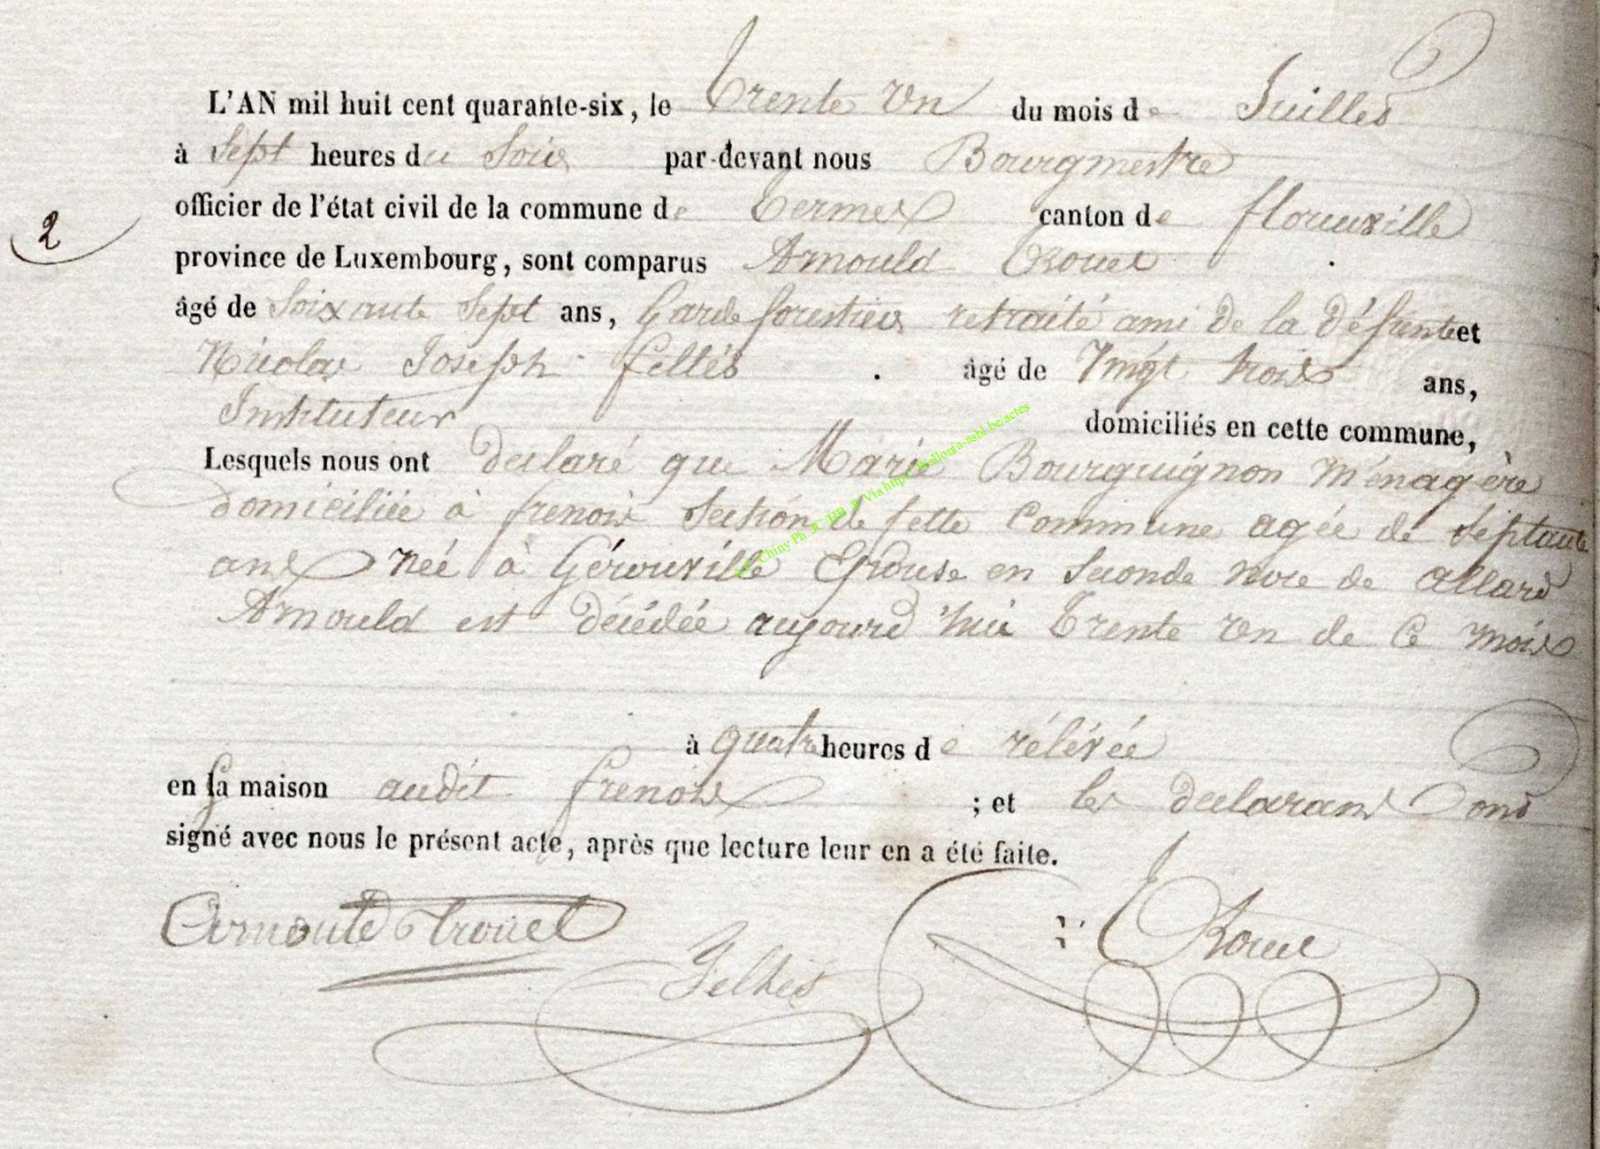 L'AN mil huit cent quarante-six, le trente un du mois de Juillet
à Sept heures du Soir par-devant nous Bourgmestre
officier de l'état civil de la commune de termes canton de florenville
2
province de Luxembourg, sont comparus Arnould trouet
âgé de Soixante Sept ans, Garde forestier retraité ami de la défunte et
Nicolas Joseph feltés âgé de Vingt trois ans,
Instituteur domiciliés en cette commune,
Lesquels nous ont declaré que Marie Bourguignon ménagère
domiciliée à frenois Section de cette commune agée de septante
ans née à Gérouville Epouse en seconde noce de allard
Arnould est décédée aujourd'hui trente un de ce mois
à quatre heures de rélévée
en sa maison audit frenois ; et les declarans ont
signé avec nous le présent acte, après que lecture leur en a été faite.
Arnould trouet